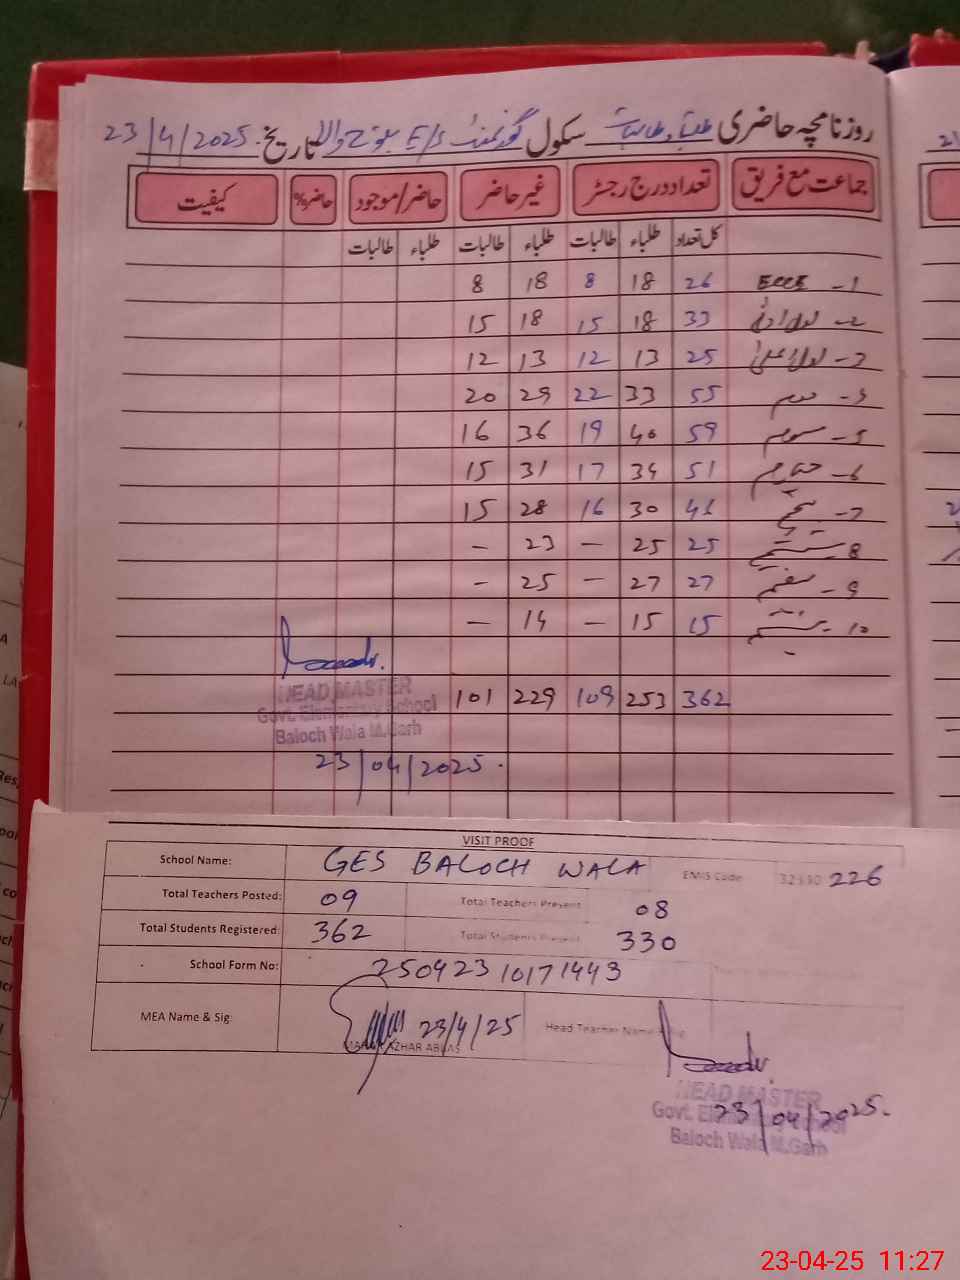 روزنامچہ حاضری طلباء و طالبات سکول گورنمنٹ E/S بلوچ والا تاریخ 23/4/2025
جماعت مع فریق تعداد درج رجسٹر غیر حاضر حاضر/موجود حاضر% کیفیت
کل تعداد طلباء طالبات طلباء طالبات طلباء طالبات
1- ECCE 26 18 8 18 8
2- اول ادنیٰ 33 18 15 18 15
3- اول اعلیٰ 25 13 12 13 12
دوم 55 33 22 29 20
5- سوم 59 40 19 36 16
6- چہارم 51 34 17 31 15
7- پنجم 46 30 16 28 15
8 ششم 25 25 — 23 —
9- ہفتم 27 27 — 25 -
10- ہشتم 15 15 — 14 —
362 253 109 229 101
HEAD MASTER
Govt. Elementary School
Baloch Wala M.Garh
23/04/2025.
VISIT PROOF
School Name: GES BALOCH WALA EMIS Code 32330 226
Total Teachers Posted: 09 Total Teachers Present 08
Total Students Registered: 362 Total Students Present 330
School Form No: 25042310171443
MEA Name & Sig: 23/4/25 Head Teacher Name & Sig
AZHAR ABBAS
HEAD MASTER
Govt. Elementary School
23/04/2025.
Baloch Wala M.Garh
23-04-25 11:27